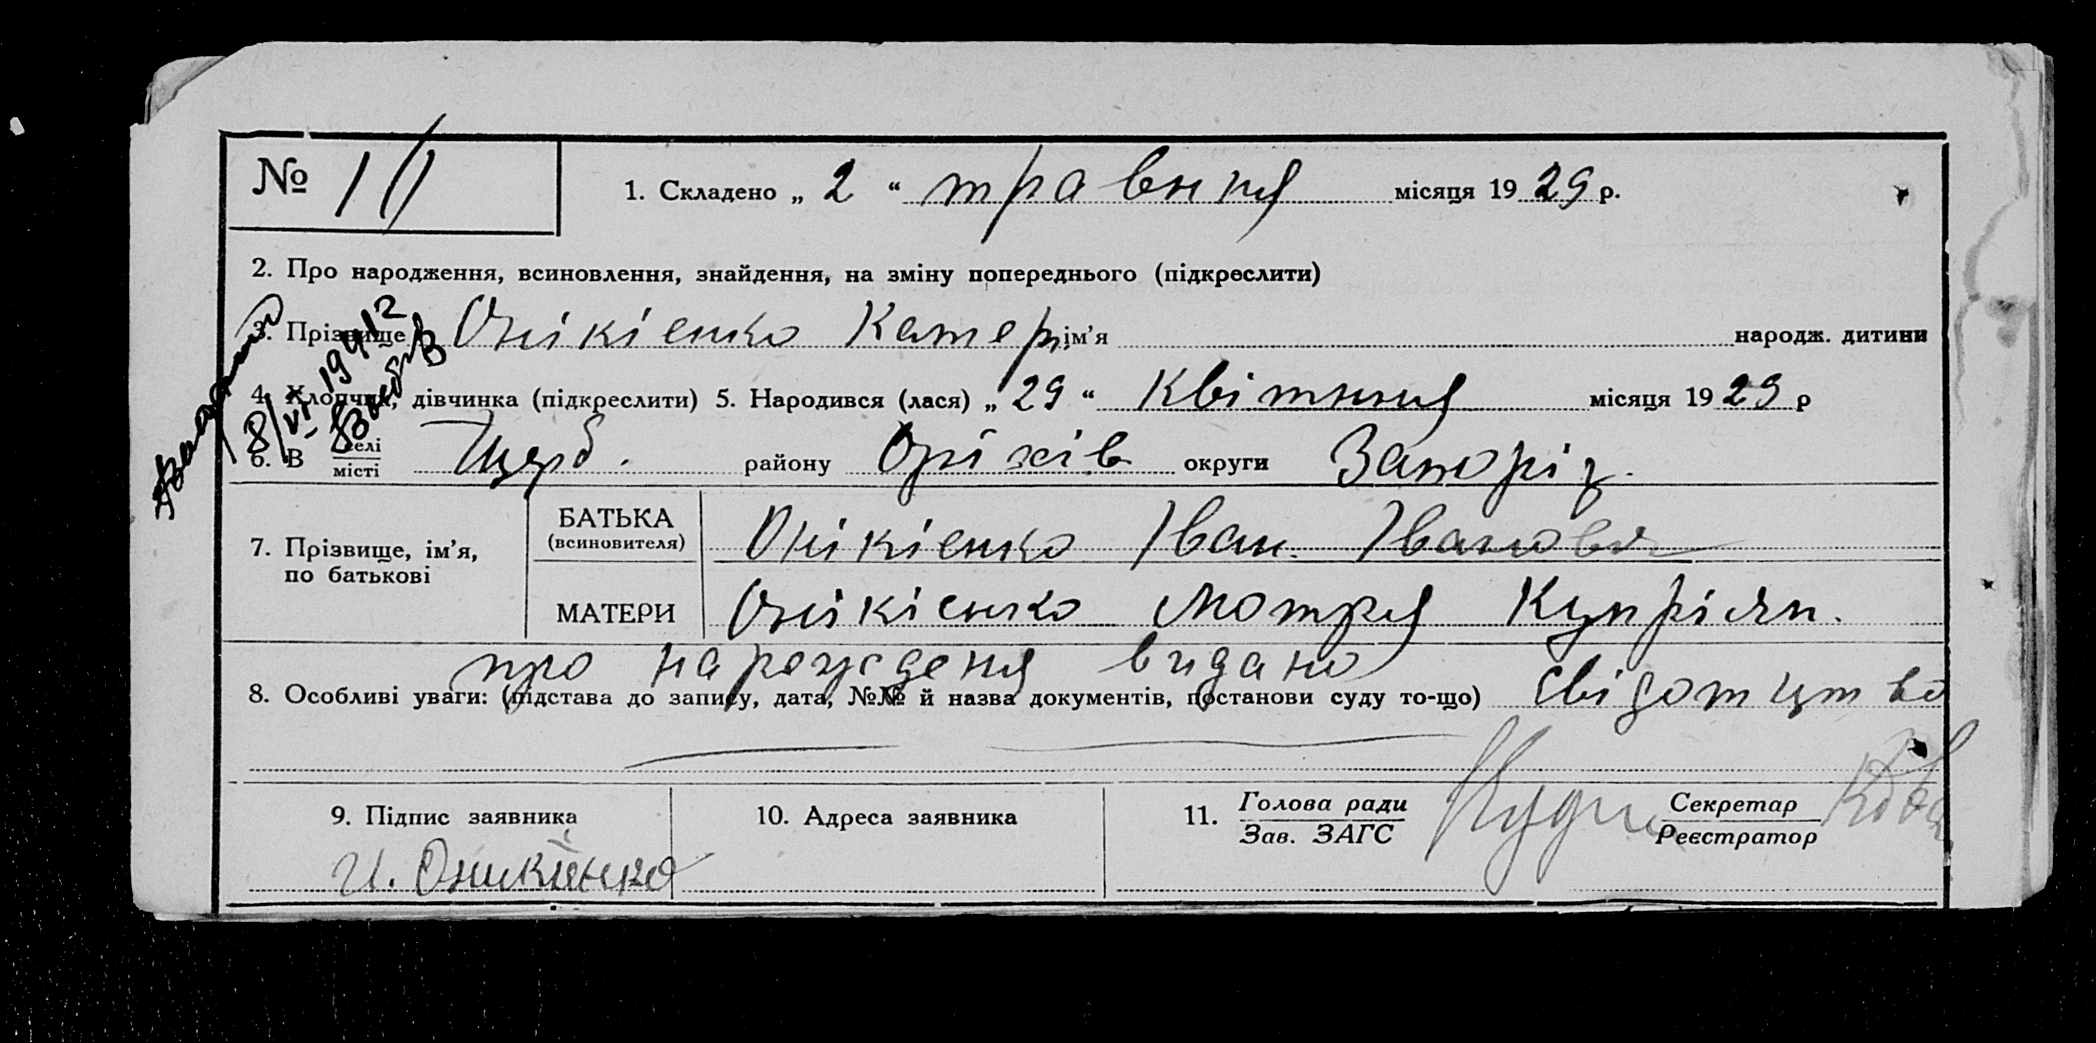 № 11 1. Складено „ 2 “ травння місяця 1929 р.
2. Про народження, всиновлення, знайдення, на зміну попереднього (підкреслити)
3. Прізвище Онікіенко Катер. ім’я народж. дитини
4. Хлопчик, дівчинка (підкреслити) 5. Народився (лася) „ 29 “ Квітння місяця 1929 р
6. В селі Щерб. району Оріхів округи Запоріз.
місті
8/VI 1941 г
7. Прізвище, ім’я, по батькові
БАТЬКА (всиновителя) Онікіенко Іван. Іванович
МАТЕРИ Онікієнко Мотря Купріян.
про нарожденя видано
8. Особливі уваги: (підстава до запису, дата, №№ й назва документів, постанови суду то-що) свідотцтво
9. Підпис заявника 10. Адреса заявника 11. Голова ради Секретар
Зав. ЗАГС Реєстратор
И. Оникіенко